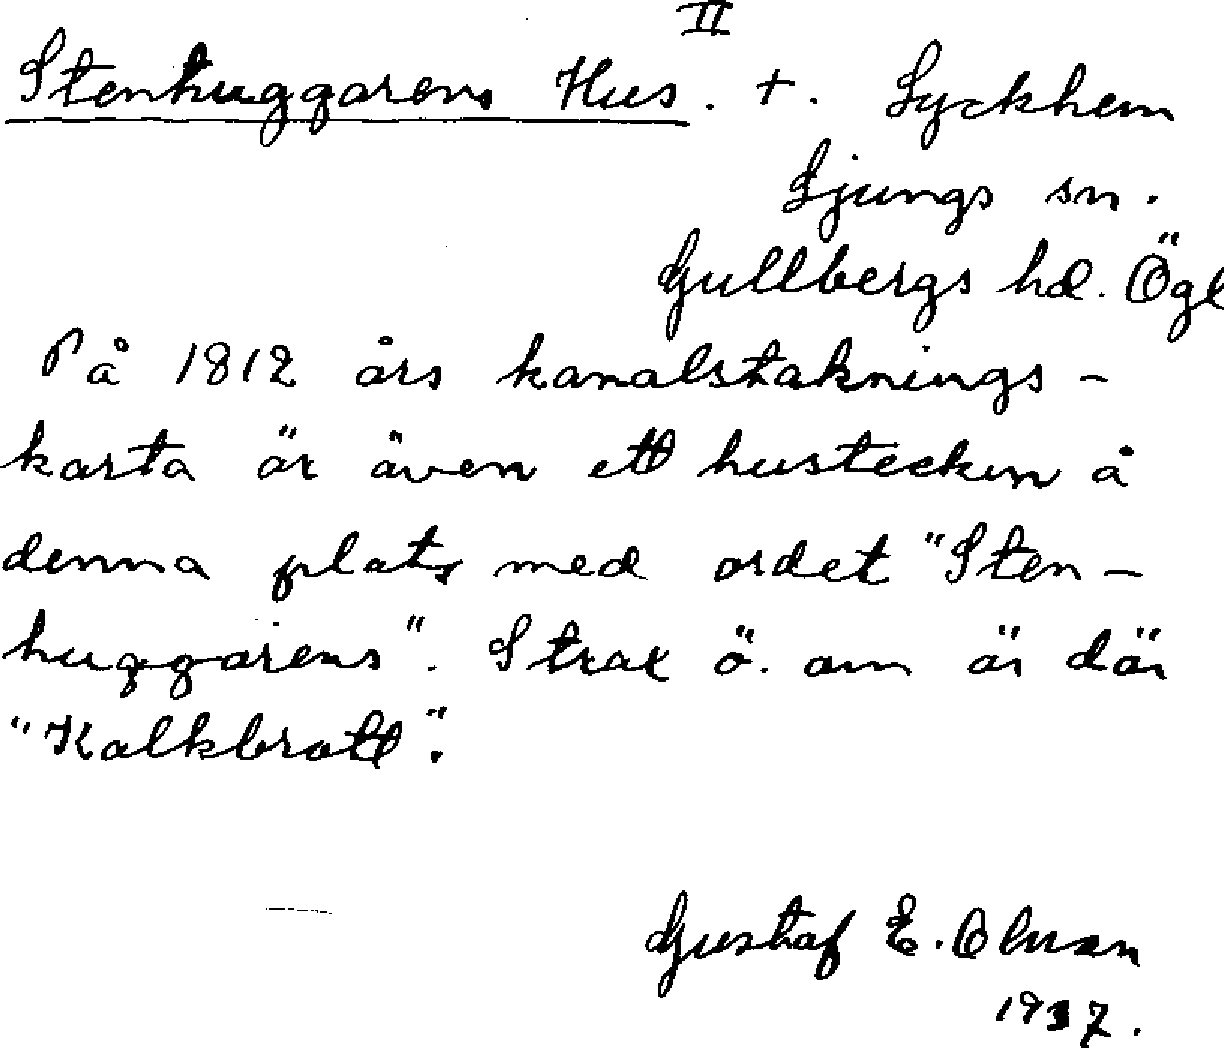 II
Stenhuggarens Hus. +. Lyckhem
Ljungs sn.
Gullbergs hd. Ögl
På 1812 års kanalstaknings-
karta är även ett hustecken å
denna plats med ordet "Sten-
huggarens". Strax ö. om är där
"Kalkbrott".
Gustaf E. Olsson
1937.